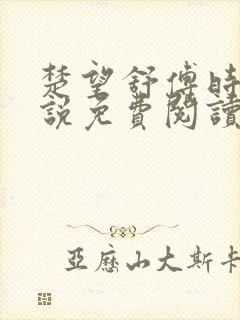 楚望舒傅時
說免費閱讀
亞歷山大斯卡